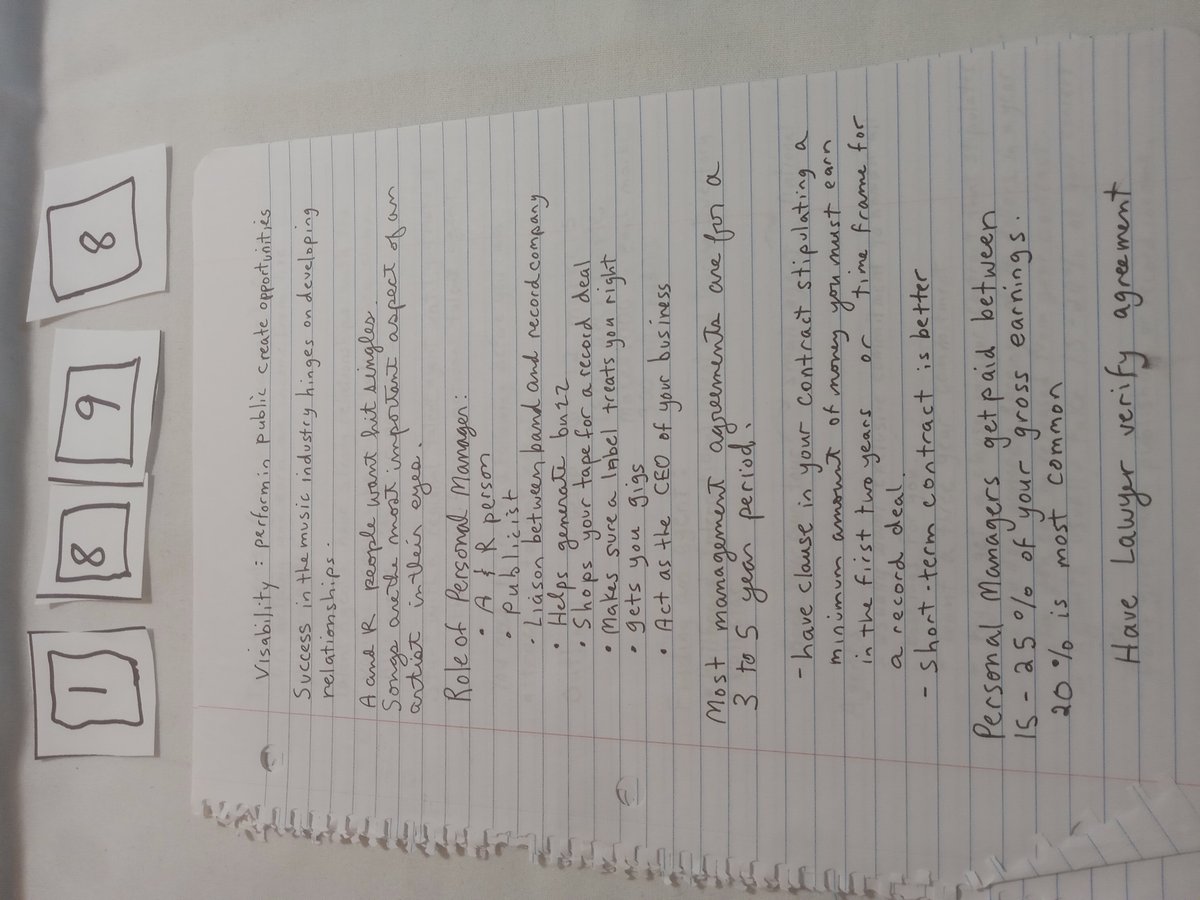 1 8 9 8
Visability : perform in public create opportunities
Success in the music industry hinges on developing
relationships.
A and R people want hit singles.
Songs are the most important aspect of an
artist in their eyes.
Role of Personal Manager:
• A & R person
• publicist
• Liason between band and record company
• Helps generate buzz
• Shops your tape for a record deal
• Makes sure a label treats you right
• gets you gigs
• Act as the CEO of your business
Most management agreements are for a
3 to 5 year period.
- have clause in your contract stipulating a
minimum amount of money you must earn
in the first two years or time frame for
a record deal.
- Short-term contract is better
Personal Managers get paid between
15 - 25 % of your gross earnings.
20 % is most common
Have Lawyer verify agreement